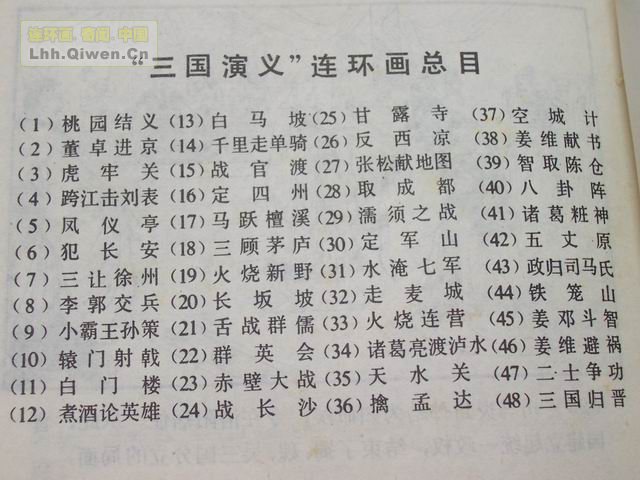 连环画.奇闻.中国
Lhh.Qiwen.Cn
“三国演义”连环画总目
(1) 桃园结义 (13) 白马坡 (25) 甘露寺 (37) 空城计
(2) 董卓进京 (14) 千里走单骑 (26) 反西凉 (38) 姜维献书
(3) 虎牢关 (15) 战官渡 (27) 张松献地图 (39) 智取陈仓
(4) 跨江击刘表 (16) 定四州 (28) 取成都 (40) 八卦阵
(5) 凤仪亭 (17) 马跃檀溪 (29) 濡须之战 (41) 诸葛粧神
(6) 犯长安 (18) 三顾茅庐 (30) 定军山 (42) 五丈原
(7) 三让徐州 (19) 火烧新野 (31) 水淹七军 (43) 政归司马氏
(8) 李郭交兵 (20) 长坂坡 (32) 走麦城 (44) 铁笼山
(9) 小霸王孙策 (21) 舌战群儒 (33) 火烧连营 (45) 姜邓斗智
(10) 辕门射戟 (22) 群英会 (34) 诸葛亮渡泸水 (46) 姜维避祸
(11) 白门楼 (23) 赤壁大战 (35) 天水关 (47) 二士争功
(12) 煮酒论英雄 (24) 战长沙 (36) 擒孟达 (48) 三国归晋